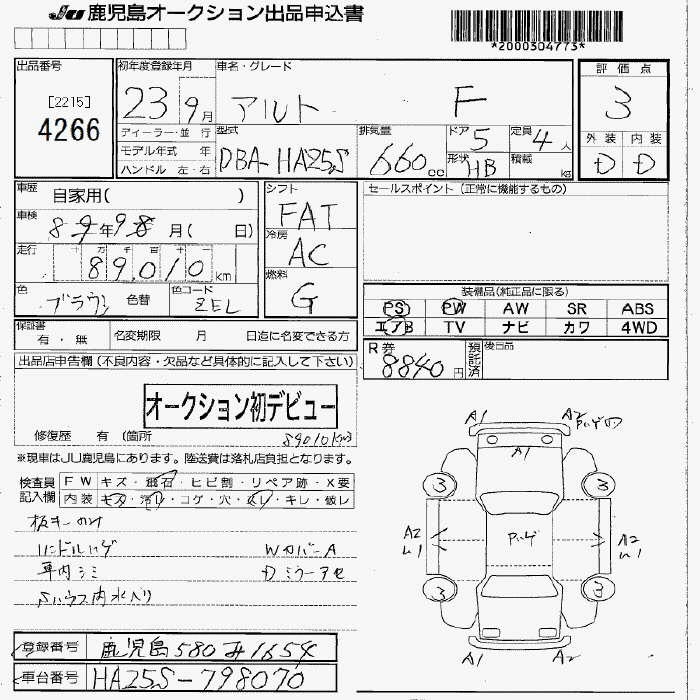 JU 鹿児島オークション出品申込書
*2000304773*
出品番号
[2215]
4266
初年度登録年月
23 9月
車名・グレード
アルト F
ディーラー・並 行
モデル年式 年
ハンドル 左・右
型式
DBA-HA25S
排気量
660cc
ドア 5
定員 4人
形状 HB
積載 kg
評価点
3
外装 内装
D D
車歴
自家用( )
車検
月( 日)
走行
十 万 千 百 十 一
89,010 km
色
ブラウン
色替
色コード
ZEL
シフト
FAT
冷房
AC
燃料
G
セールスポイント(正常に機能するもの)
装備品(純正品に限る)
PS PW AW SR ABS
エアB TV ナビ カワ 4WD
保証書
有・無
名変期限 月 日迄に名変できる方
R券
8840円
預託済
後日品
出品店申告欄(不良内容・欠品など具体的に記入して下さい)
オークション初デビュー
修復歴 有 (箇所
89010km
※現車はJU鹿児島にあります。陸送費は落札店負担となります。
検査員記入欄
FW キズ・飛石・ヒビ割・リペア跡・X要
内装 キズ・汚レ・コゲ・穴・スレ・キレ・破レ
板キーのみ
ハンドルハゲ
WカバーA
車内シミ
Dミラーアセ
登録番号
鹿児島580
1654
車台番号
HA25S-798070
A1
A2
A1
3
3
A2
ハゲ
A2
3
3
A1
A2